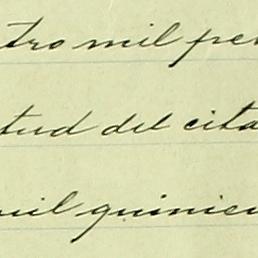 tro mil pe
tud del cita
mil quinien